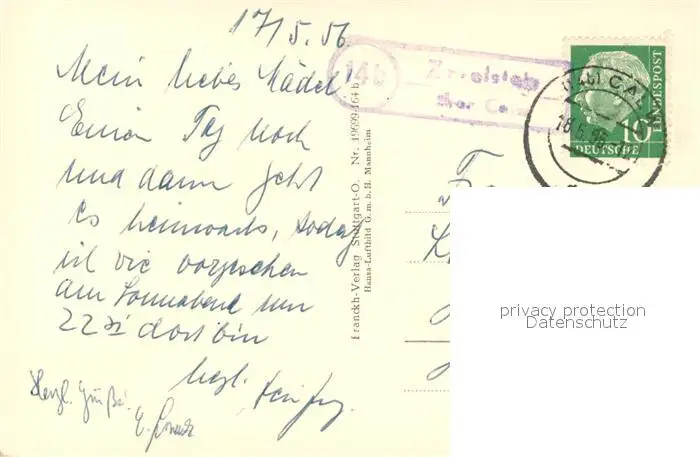 17/5.56
Mein liebes Mädel!
Einen Tag noch
und dann geht
es heimwärts, sodaß
ich wie vorgesehen
am Sonnabend um
22 dort bin
herzl.
Herzl. Grüße
14b
Zavelstein
über Calw
(14b) CALW
DEUTSCHE
BUNDESPOST
10
Franckh-Verlag Stuttgart-O. Nr. 19699-164 b
Hansa-Luftbild G.m.b.H. Mannheim
privacy protection
Datenschutz